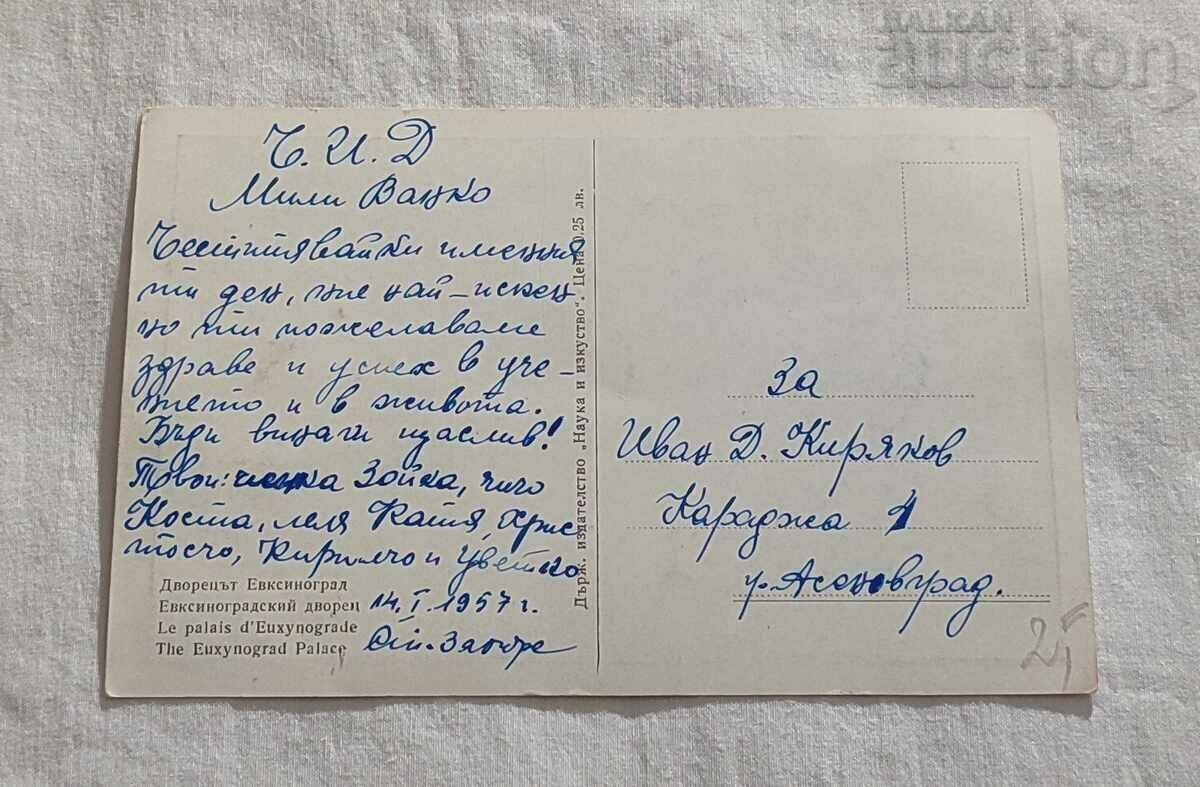 BALKAN
auction
Ч. И. Д
Мили Ванко
Честитявайки именния
ти ден, ние най-искрен
но ти пожелаваме
здраве и успех в уче-
нието и в живота.
Бъди винаги щаслив!
Твои: Зойка, чичо
Коста, леля Катя, Хрис
тосчо, Кирилчо и Цветко
14. I. 1957 г.
Ст. Загора
Дворецът Евксиноград
Евксиноградский дворец
Le palais d'Euxynograde
The Euxynograd Palace
Държ. издателство „Наука и изкуство“. Цена 0.25 лв.
За
Иван Д. Киряков
Караджа 1
гр. Асеновград.
25